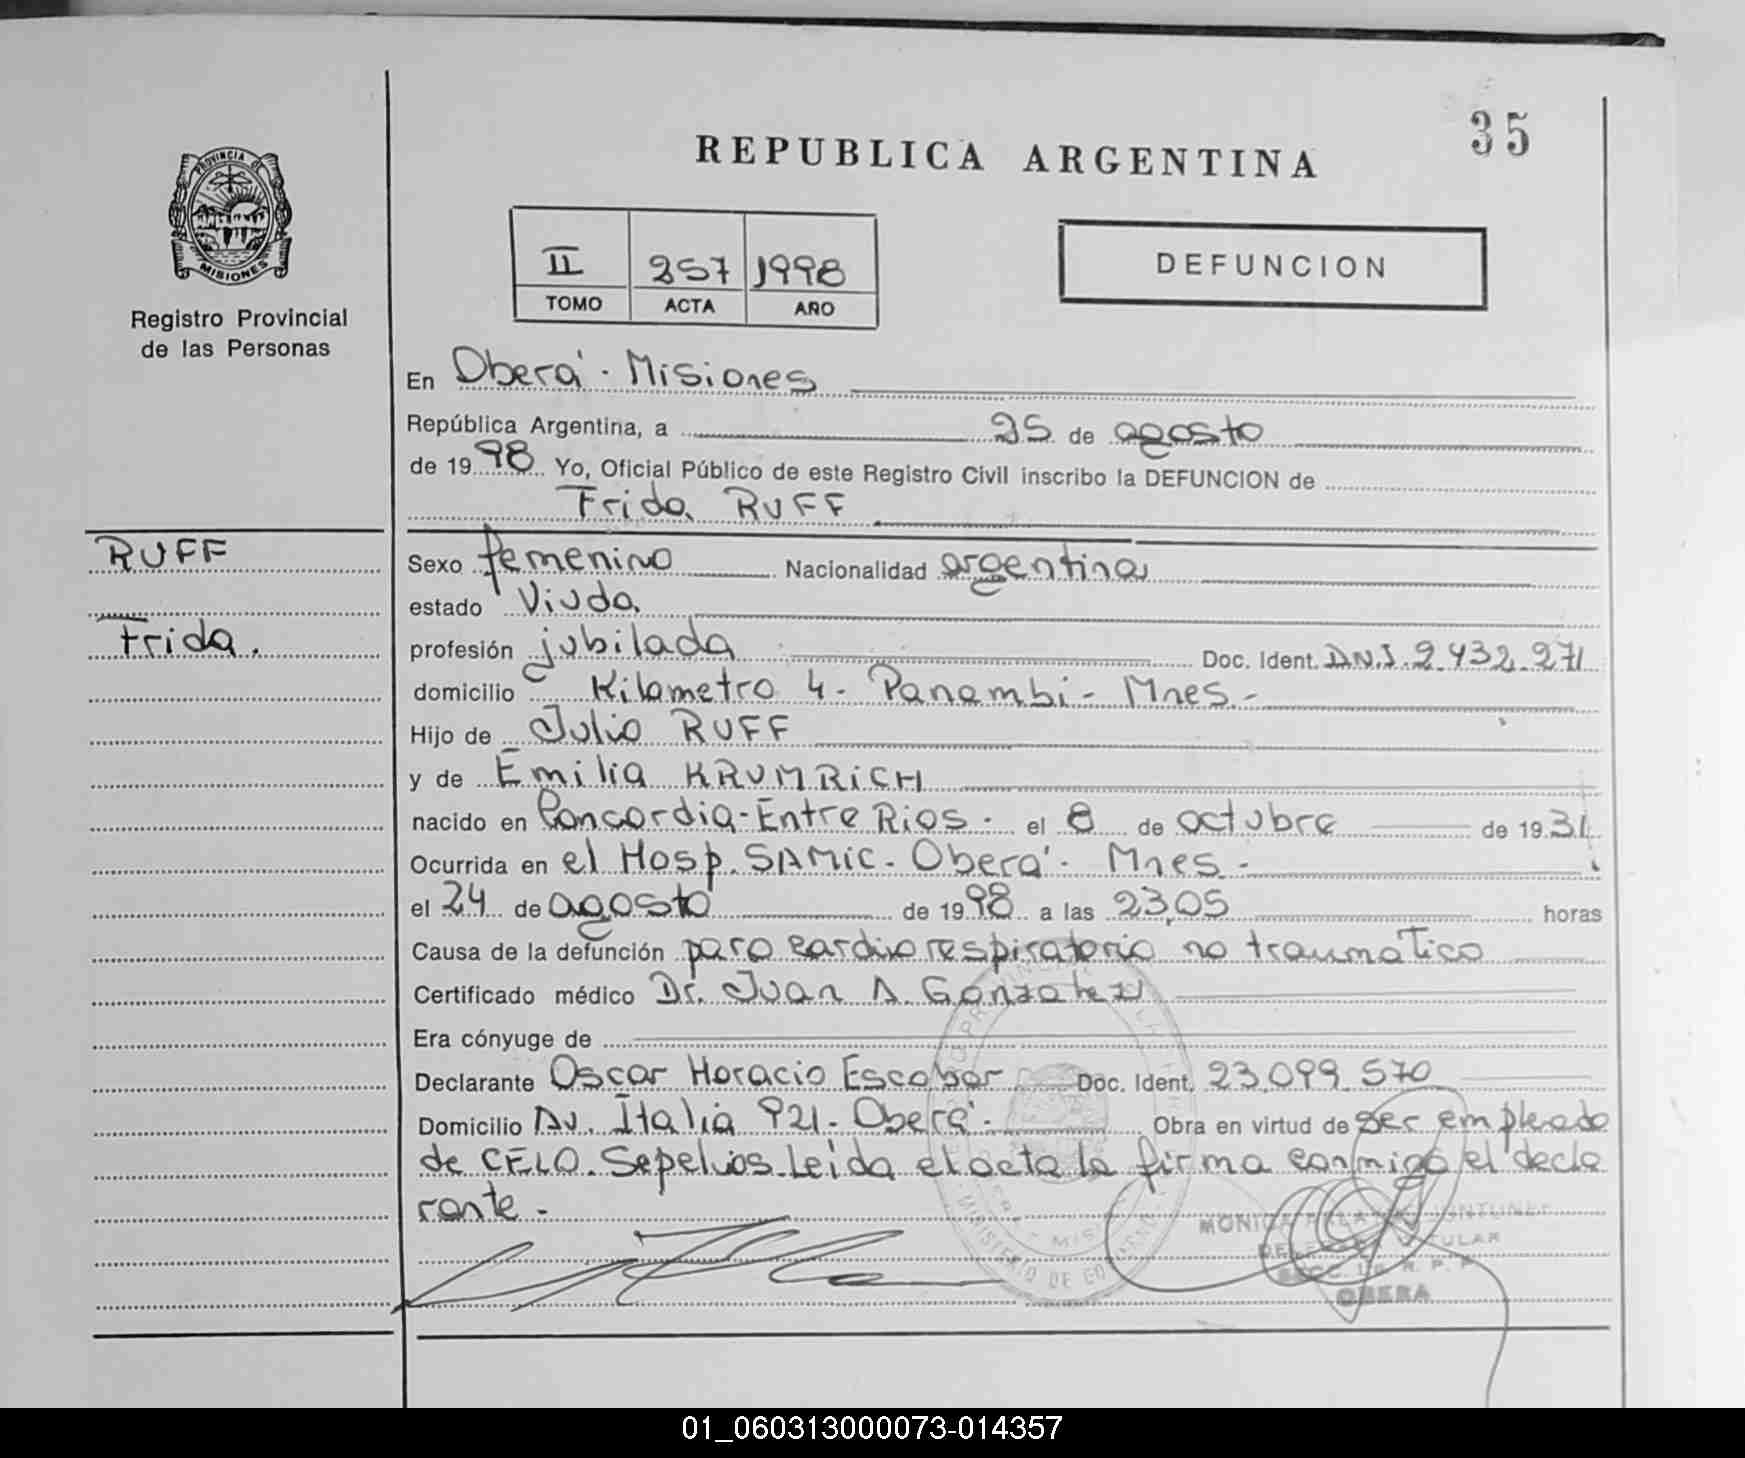 35
REPUBLICA ARGENTINA
PROVINCIA DE
MISIONES
Registro Provincial
de las Personas
II 257 1998
TOMO ACTA AÑO
DEFUNCION
En Oberá - Misiones
República Argentina, a 25 de agosto
de 1998 Yo, Oficial Público de este Registro Civil inscribo la DEFUNCION de
Frida RUFF
RUFF
Frida.
Sexo femenino Nacionalidad argentina
estado Viuda
profesión jubilada Doc. Ident. D.N.I. 2.432.271
domicilio Kilometro 4 - Panambi - Mnes -
Hijo de Julio RUFF
y de Emilia KRUMRICH
nacido en Concordia - Entre Rios - el 8 de octubre de 1931
Ocurrida en el Hosp. SAMIC - Oberá - Mnes -
el 24 de agosto de 1998 a las 23,05 horas
Causa de la defunción paro cardiorespiratorio no traumatico
Certificado médico Dr. Juan A. Gonzalez
Era cónyuge de
Declarante Oscar Horacio Escobar Doc. Ident. 23.099.570
Domicilio Av. Italia 921 - Oberá - Obra en virtud de ser empleado
de CELO. Sepelios. Leida el acta la firma conmigo el decla
rante -
MINISTERIO DE GOBIERNO
MONICA
OBERA
01_060313000073-014357